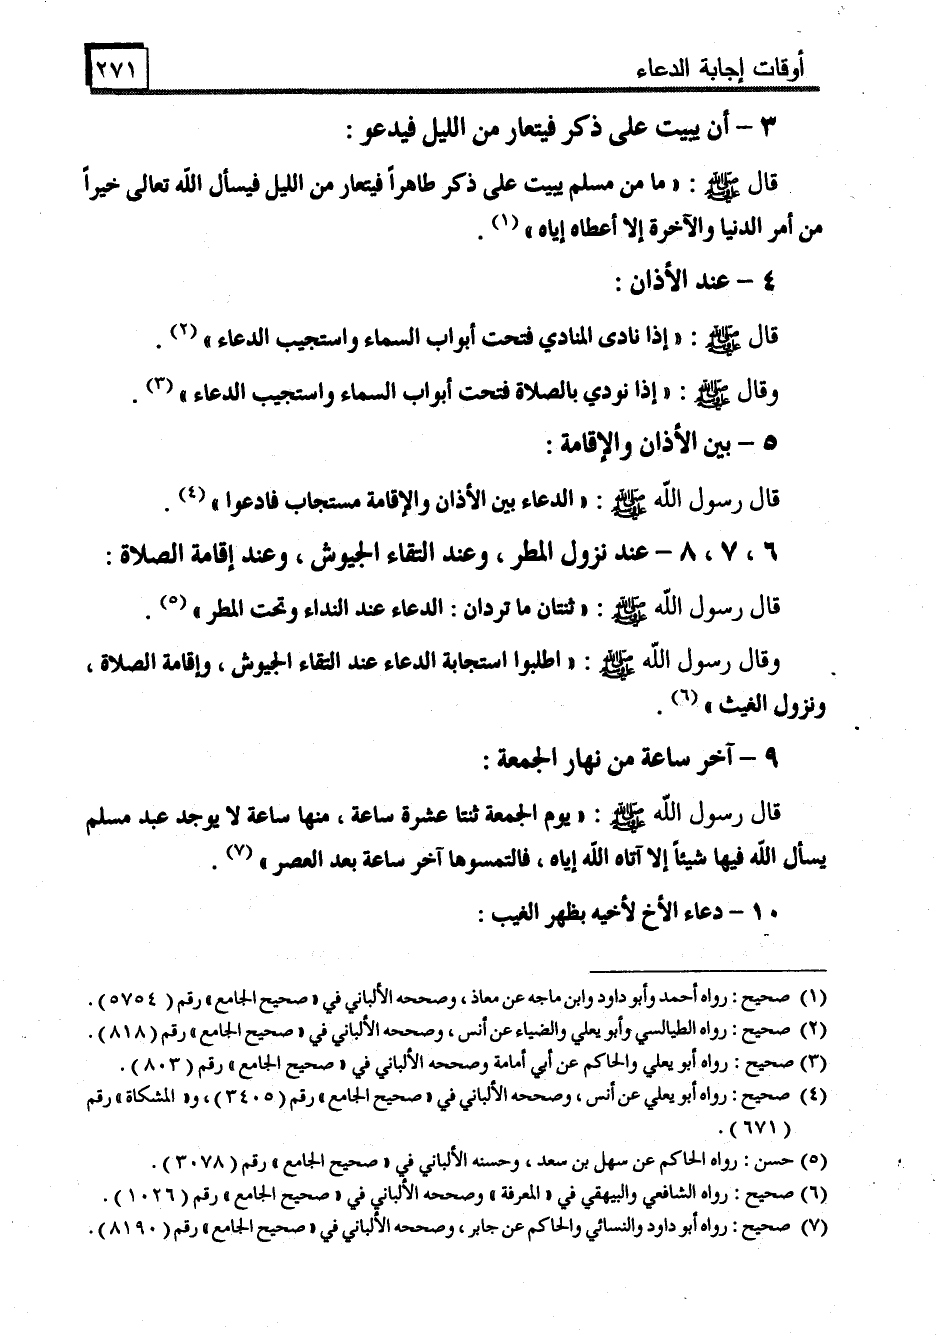 أوقات إجابة الدعاء ٢٧١
٣ – أن يبيت على ذكر فيتعار من الليل فيدعو :
قال ﷺ : « ما من مسلم يبيت على ذكر طاهراً فيتعار من الليل فيسأل الله تعالى خيراً
من أمر الدنيا والآخرة إلا أعطاه إياه » (١) .
٤ – عند الأذان :
قال ﷺ : « إذا نادى المنادي فتحت أبواب السماء واستجيب الدعاء » (٢) .
وقال ﷺ : « إذا نودي بالصلاة فتحت أبواب السماء واستجيب الدعاء » (٣) .
٥ – بين الأذان والإقامة :
قال رسول الله ﷺ : « الدعاء بين الأذان والإقامة مستجاب فادعوا » (٤) .
٦ ، ٧ ، ٨ – عند نزول المطر ، وعند التقاء الجيوش ، وعند إقامة الصلاة :
قال رسول الله ﷺ : « ثنتان ما تردان : الدعاء عند النداء وتحت المطر » (٥) .
وقال رسول الله ﷺ : « اطلبوا استجابة الدعاء عند التقاء الجيوش ، وإقامة الصلاة ،
ونزول الغيث » (٦) .
٩ – آخر ساعة من نهار الجمعة :
قال رسول الله ﷺ : « يوم الجمعة ثنتا عشرة ساعة ، منها ساعة لا يوجد عبد مسلم
يسأل الله فيها شيئاً إلا آتاه الله إياه ، فالتمسوها آخر ساعة بعد العصر » (٧) .
١٠ – دعاء الأخ لأخيه بظهر الغيب :
(١) صحيح : رواه أحمد وأبو داود وابن ماجه عن معاذ ، وصححه الألباني في « صحيح الجامع » رقم ( ٥٧٥٤ ) .
(٢) صحيح : رواه الطيالسي وأبو يعلي والضياء عن أنس ، وصححه الألباني في « صحيح الجامع » رقم (٨١٨) .
(٣) صحيح : رواه أبو يعلي والحاكم عن أبي أمامة وصححه الألباني في « صحيح الجامع » رقم ( ٨٠٣ ) .
(٤) صحيح : رواه أبو يعلي عن أنس ، وصححه الألباني في « صحيح الجامع » رقم ( ٣٤٠٥ ) ، و« المشكاة » رقم
( ٦٧١ ) .
(٥) حسن : رواه الحاكم عن سهل بن سعد ، وحسنه الألباني في « صحيح الجامع » رقم ( ٣٠٧٨ ) .
(٦) صحيح : رواه الشافعي والبيهقي في « المعرفة » وصححه الألباني في « صحيح الجامع » رقم ( ١٠٢٦ ) .
(٧) صحيح : رواه أبو داود والنسائي والحاكم عن جابر ، وصححه الألباني في « صحيح الجامع » رقم ( ٨١٩٠ ) .